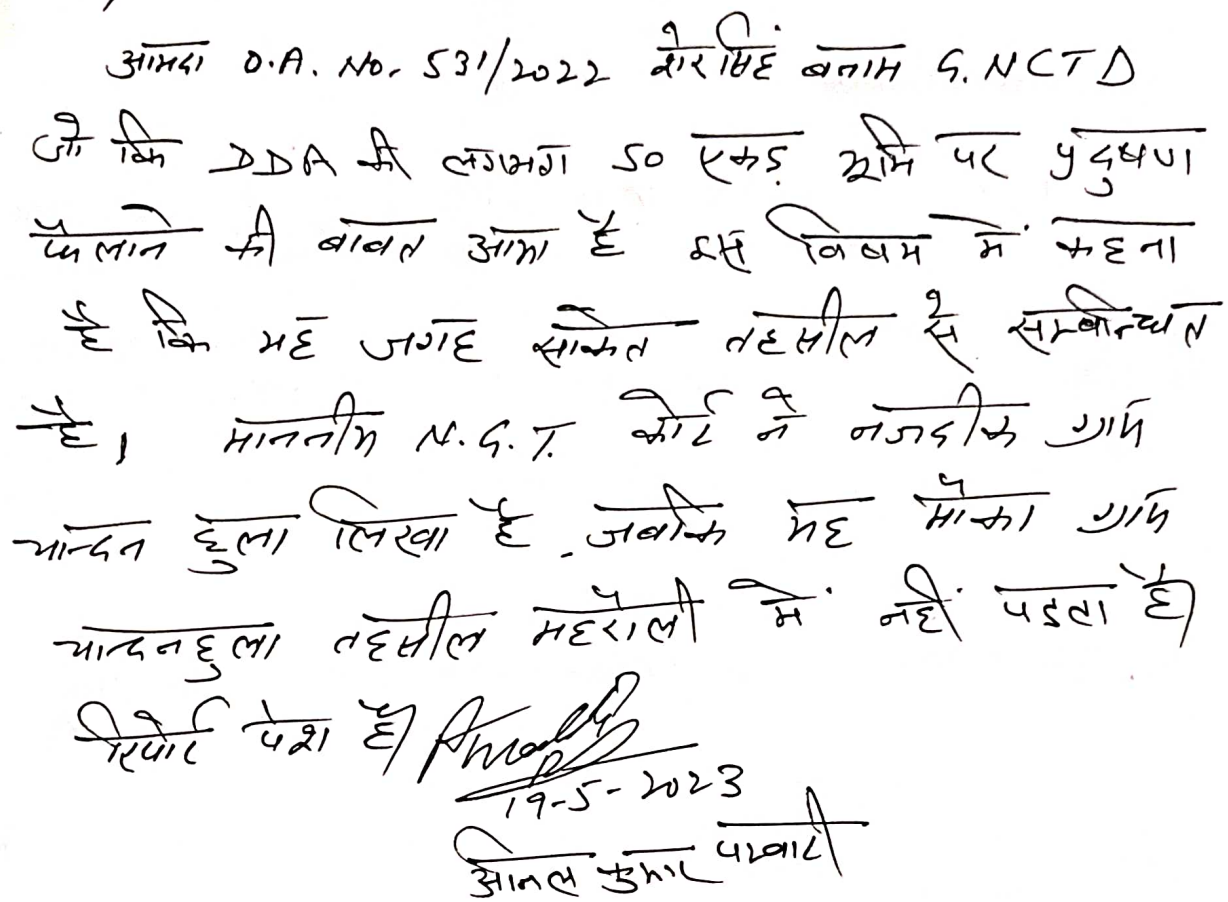 आमदा O.A. No. 531/2022 शेर सिंह बनाम G.NCTD
जो कि DDA की लगभग 50 एकड़ भूमि पर प्रदुषण
फैलाने की बाबत आया है इस विषय में कहना
है कि यह जगह साकेत तहसील से सम्बन्धित
है। माननीय N.G.T. कोर्ट ने नजदीक ग्राम
चान्दन हुला लिखा है जबकि यह मौका ग्राम
चान्दनहुला तहसील महरौली में नहीं पडता है।
रिपोर्ट पेश है।
19-5-2023
अनिल कुमार पटवारी